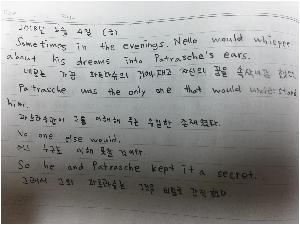 2018년 2월 4일 (금)
Sometimes in the evenings. Nello would whisper
about his dreams into Patrasche's ears.
네로는 가끔 파트라슈의 귀에 대고 자신의 꿈을 속삭이곤 했다.
Patrasche was the only one that would understand
him.
파트라슈만이 그를 이해해 주는 유일한 존재였다.
No one else would.
누구도 이해 못할 것이다
So he and Patrasche kept it a secret.
그래서 그와 파트라슈는 그것을 비밀로 간직했다